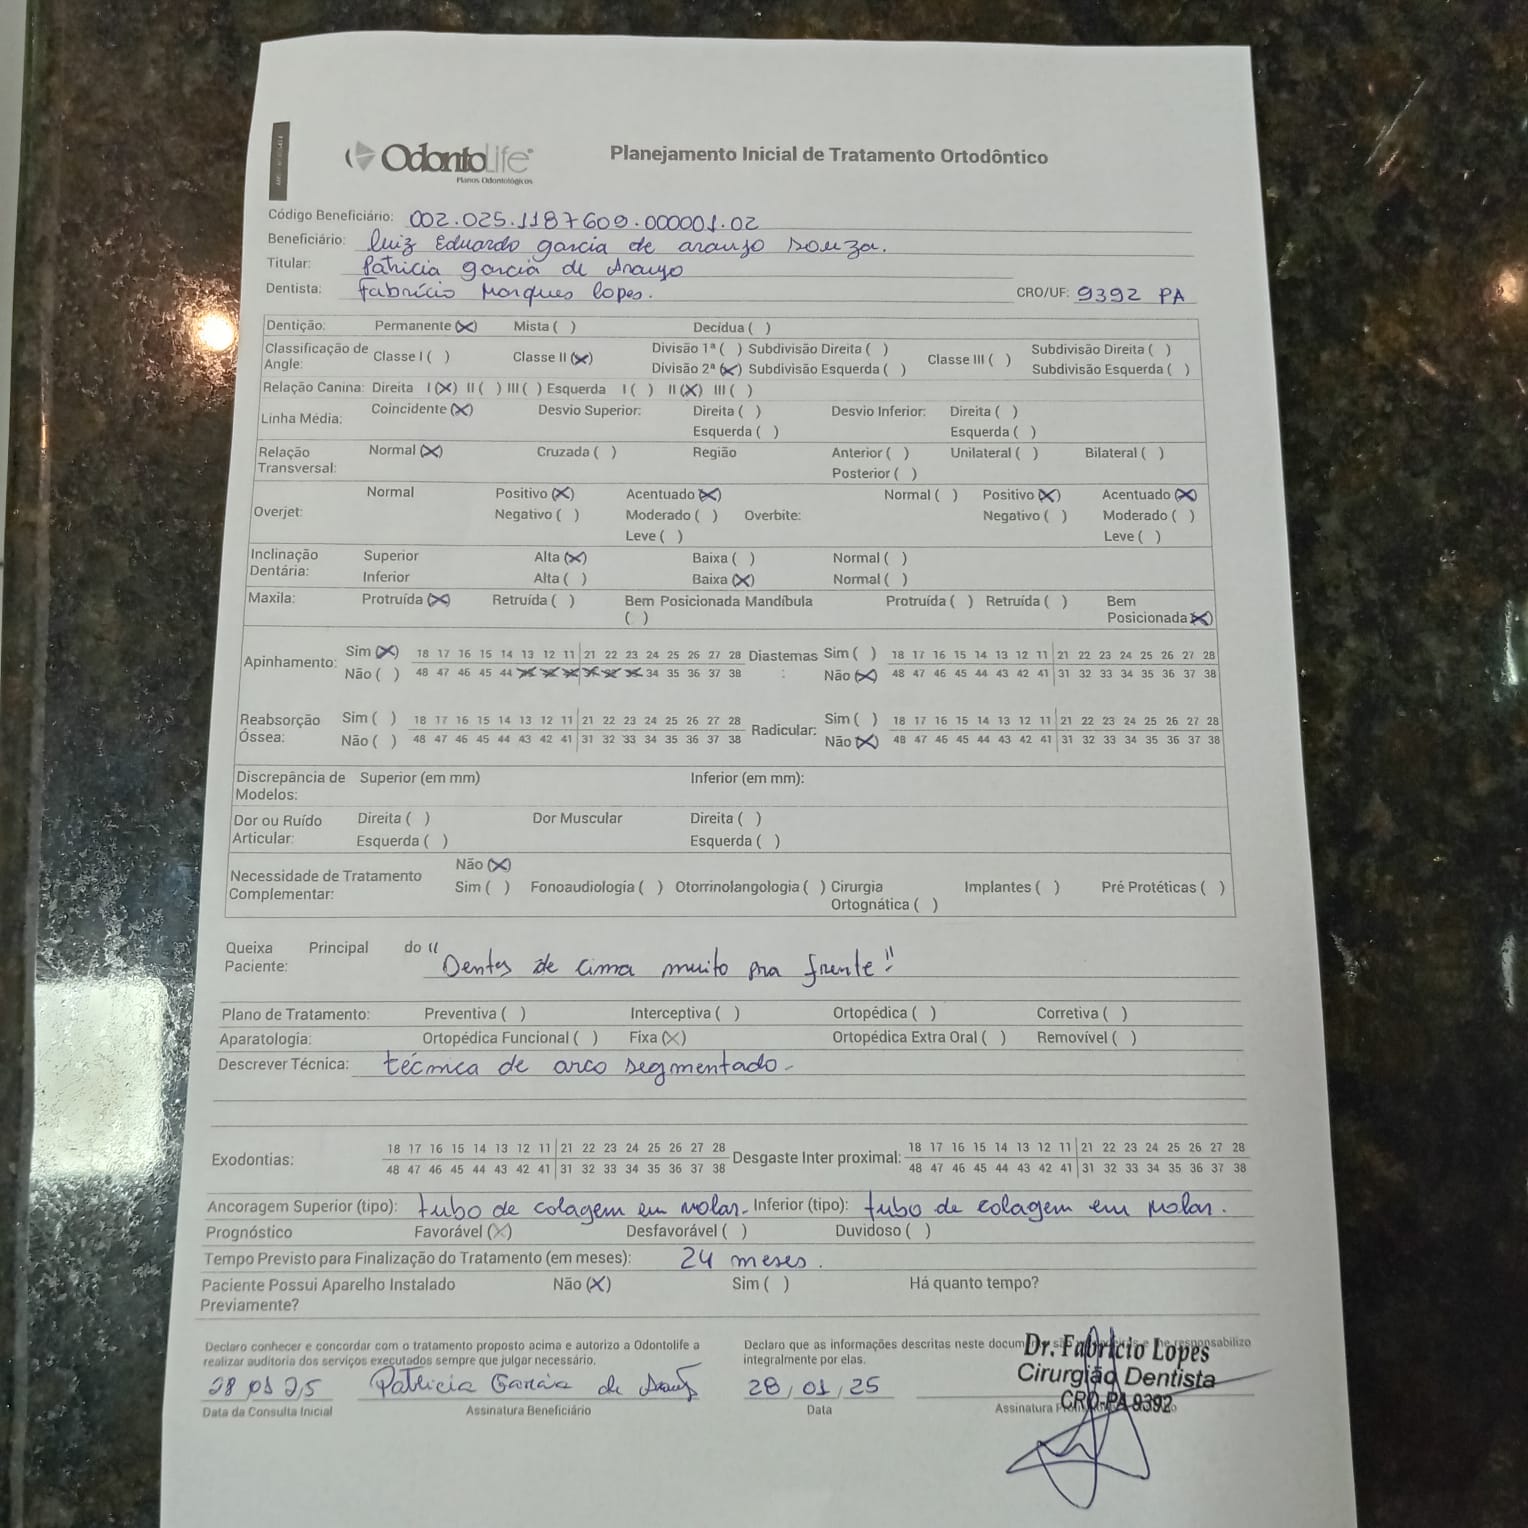 OdontoLife
Planos Odontológicos
Planejamento Inicial de Tratamento Ortodôntico
Código Beneficiário: 002.025.1187609.000001.02
Beneficiário: Luiz Eduardo garcia de araujo souza.
Titular: Patricia garcia de Araujo
Dentista: Fabrício Marques lopes. CRO/UF: 9392 PA
Dentição: Permanente (X) Mista ( ) Decídua ( )
Classificação de Angle: Classe I ( ) Classe II (X) Divisão 1ª ( ) Subdivisão Direita ( ) Classe III ( ) Subdivisão Direita ( )
Divisão 2ª (X) Subdivisão Esquerda ( ) Subdivisão Esquerda ( )
Relação Canina: Direita I (X) II ( ) III ( ) Esquerda I ( ) II (X) III ( )
Linha Média: Coincidente (X) Desvio Superior: Direita ( ) Desvio Inferior: Direita ( )
Esquerda ( ) Esquerda ( )
Relação Transversal: Normal (X) Cruzada ( ) Região Anterior ( ) Unilateral ( ) Bilateral ( )
Posterior ( )
Overjet: Normal Positivo (X) Acentuado (X) Overbite: Normal ( ) Positivo (X) Acentuado (X)
Negativo ( ) Moderado ( ) Negativo ( ) Moderado ( )
Leve ( ) Leve ( )
Inclinação Dentária: Superior Alta (X) Baixa ( ) Normal ( )
Inferior Alta ( ) Baixa (X) Normal ( )
Maxila: Protruída (X) Retruída ( ) Bem Posicionada ( ) Mandíbula Protruída ( ) Retruída ( ) Bem Posicionada (X)
Apinhamento: Sim (X) 18 17 16 15 14 13 12 11 21 22 23 24 25 26 27 28 Diastemas: Sim ( ) 18 17 16 15 14 13 12 11 21 22 23 24 25 26 27 28
Não ( ) 48 47 46 45 44 X X X X X X 34 35 36 37 38 Não (X) 48 47 46 45 44 43 42 41 31 32 33 34 35 36 37 38
Reabsorção Óssea: Sim ( ) 18 17 16 15 14 13 12 11 21 22 23 24 25 26 27 28 Radicular: Sim ( ) 18 17 16 15 14 13 12 11 21 22 23 24 25 26 27 28
Não ( ) 48 47 46 45 44 43 42 41 31 32 33 34 35 36 37 38 Não (X) 48 47 46 45 44 43 42 41 31 32 33 34 35 36 37 38
Discrepância de Modelos: Superior (em mm) Inferior (em mm):
Dor ou Ruído Articular: Direita ( ) Dor Muscular Direita ( )
Esquerda ( ) Esquerda ( )
Necessidade de Tratamento Complementar: Não (X)
Sim ( ) Fonoaudiologia ( ) Otorrinolangologia ( ) Cirurgia Ortognática ( ) Implantes ( ) Pré Protéticas ( )
Queixa Principal do Paciente: "Dentes de cima muito pra frente"
Plano de Tratamento: Preventiva ( ) Interceptiva ( ) Ortopédica ( ) Corretiva ( )
Aparatologia: Ortopédica Funcional ( ) Fixa (X) Ortopédica Extra Oral ( ) Removível ( )
Descrever Técnica: técnica de arco segmentado-
Exodontias: 18 17 16 15 14 13 12 11 21 22 23 24 25 26 27 28 Desgaste Inter proximal: 18 17 16 15 14 13 12 11 21 22 23 24 25 26 27 28
48 47 46 45 44 43 42 41 31 32 33 34 35 36 37 38 48 47 46 45 44 43 42 41 31 32 33 34 35 36 37 38
Ancoragem Superior (tipo): tubo de colagem em molar. Inferior (tipo): tubo de colagem em molar.
Prognóstico Favorável (X) Desfavorável ( ) Duvidoso ( )
Tempo Previsto para Finalização do Tratamento (em meses): 24 meses.
Paciente Possui Aparelho Instalado Previamente? Não (X) Sim ( ) Há quanto tempo?
Declaro conhecer e concordar com o tratamento proposto acima e autorizo a Odontolife a
realizar auditoria dos serviços executados sempre que julgar necessário.
28 01 25 Patricia Garcia de Araujo
Data da Consulta Inicial Assinatura Beneficiário
Declaro que as informações descritas neste documento responsabilizo
integralmente por elas.
28/01/25
Data Assinatura
Dr. Fabrício Lopes
Cirurgião Dentista
CRO-PA 9392